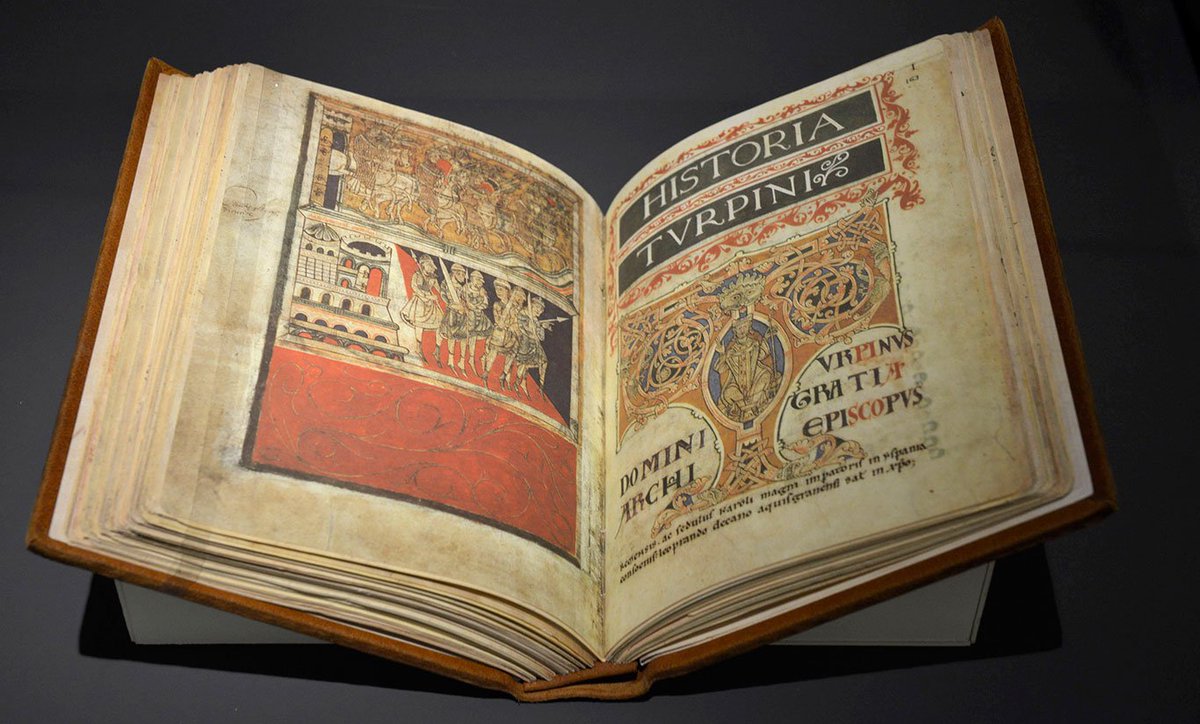 I
163
HISTORIA
TVRPINI
VRPINVS
DOMINI GRATIA
ARCHI EPISCOPVS
Remensis. ac sedulus karoli magni imperatoris in yspania
consocius. leoprando decano aquisgranensi sal̄ in xp̄o;